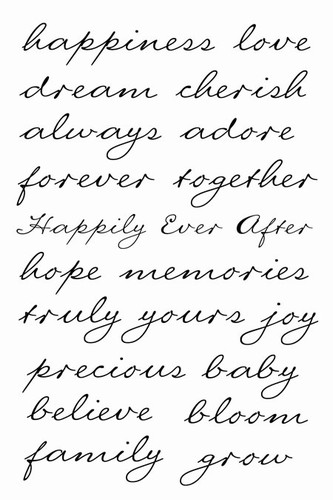 happiness love
dream cherish
always adore
forever together
Happily Ever After
hope memories
truly yours joy
precious baby
believe bloom
family grow